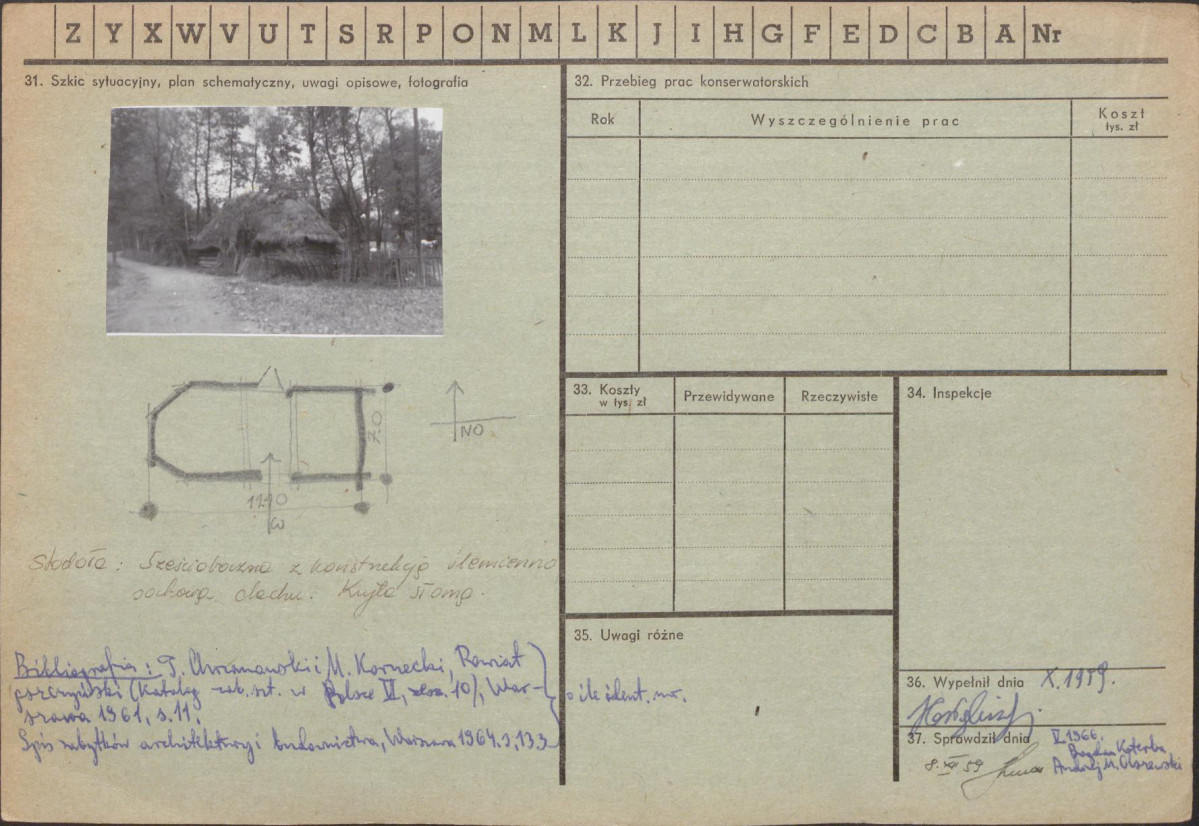 Z Y X W V U T S R P O N M L K J I H G F E D C B A Nr
31. Szkic sytuacyjny, plan schematyczny, uwagi opisowe, fotografia
7.0
NO
W
Stodoła: Sześcioboczna z konstrukcją ślemienno
sochową dachu. Kryta słomą.
Bibliografia: T. Chrzanowski i M. Kornecki, Powiat
pszczyński (Katalog zab. szt. w Polsce VI, zesz. 10), War-
szawa 1961, s. 11.
Spis zabytków architektury i budownictwa, Warszawa 1964. s. 133
o ile ident. nr.
32. Przebieg prac konserwatorskich
Rok
Wyszczególnienie prac
Koszt
tys. zł
33. Koszty
w tys. zł
Przewidywane
Rzeczywiste
34. Inspekcje
35. Uwagi różne
36. Wypełnił dnia X.1959.
37. Sprawdził dnia
8.XII 59
V.1966.
Bogdan Koterba
Andrzej M. Olszewski